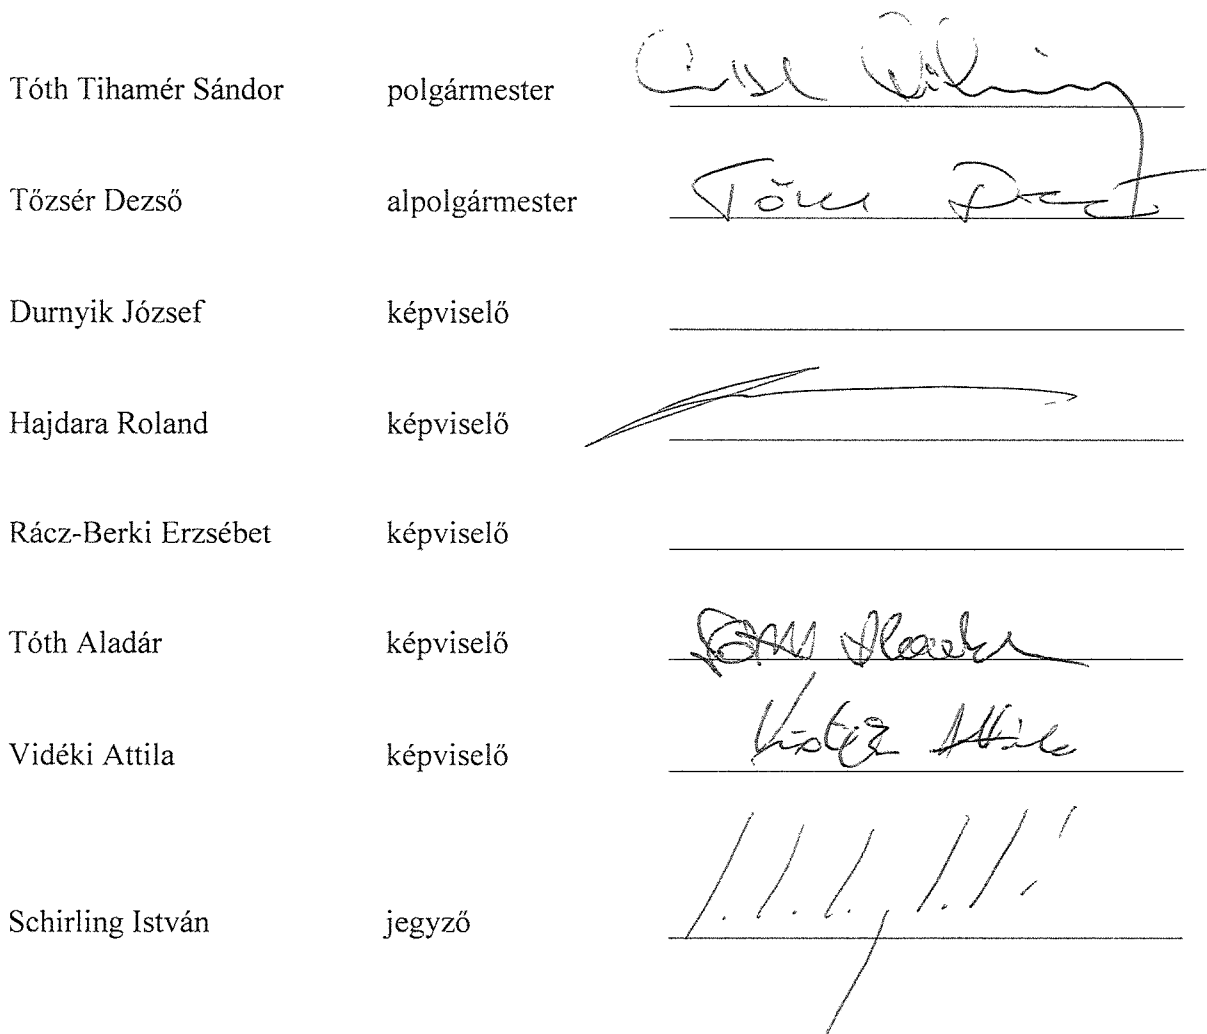 Tóth Tihamér Sándor polgármester
Tőzsér Dezső alpolgármester
Durnyik József képviselő
Hajdara Roland képviselő
Rácz-Berki Erzsébet képviselő
Tóth Aladár képviselő
Vidéki Attila képviselő Vidéki Attila
Schirling István jegyző